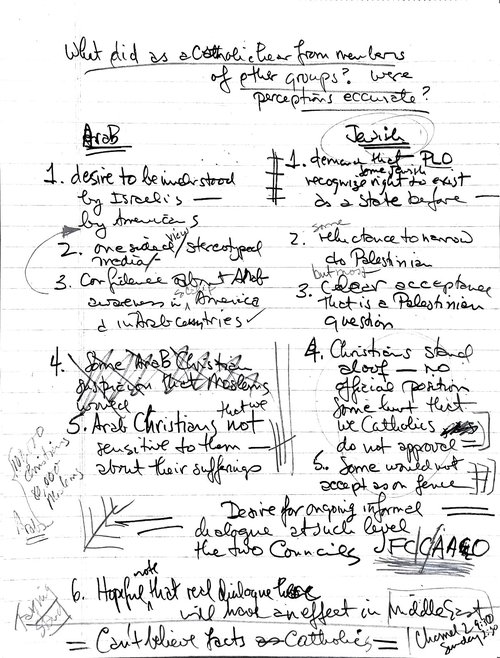 What did as a Catholic hear from members
of other groups? were
perceptions accurate?
Arab
1. desire to be understood
by Israelis —
by Americans
2. one sided view/stereotyped
media
3. Confidence about Arab
awareness in America
& in Arab countries ✓
4. Some Arab Christian
suspicion that Moslems
5. Arab Christians that we not
sensitive to them —
about their sufferings
Jewish
1. demand that — PLO
some Jewish
recognize right to exist
as a state before —
2. some reluctance to narrow
to Palestinian
but most
3. Clear acceptance
that is a Palestinian
question
4. Christians stand
aloof — no
official position
Some hurt that
we Catholics
do not approve =
5. Some would not
accept as on fence
Christians
Moslems
Arabs
Desire for ongoing informal
dialogue at such level
the two Councils
6. Hopeful note that real dialogue
will have an effect in Middle East
Taking
Stand
= Can't believe facts as Catholics =
Channel 2 9:00
Sunday